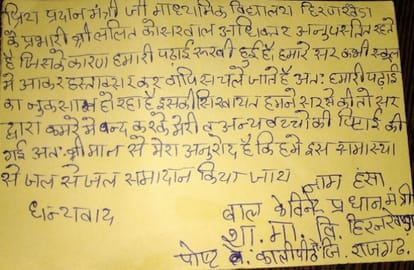 प्रिय प्रधान मंत्री जी माध्यमिक विद्यालय हिरनखेड़ा
के प्रभारी श्री ललित कोसरवाल अधिकतर अनुपस्तित रहते
है जिसके कारण हमारी पढ़ाई रूखी हुई है हमारे सर कभी स्कूल
में आकर हस्ताक्सर कर वापिस चले जाते है अतः हमारी पढ़ाई
का नुकसान हो रहा है इसकी सिखायत हमने सर से की तो सर
द्वारा कमरे में बन्द करके मेरी व अन्य बच्चो की पिटाई की
गई अतः श्री मान से मेरा अनुरोद है कि हमे इस सामास्या
से जल से जल समादान किया जाय
नाम हंसा
धन्यवाद
बाल केविनेट प्रधान मंत्री
शा. मा. वि. हिरनखेड़ा
पोष्ट कालीपीठ जि. राजगढ़